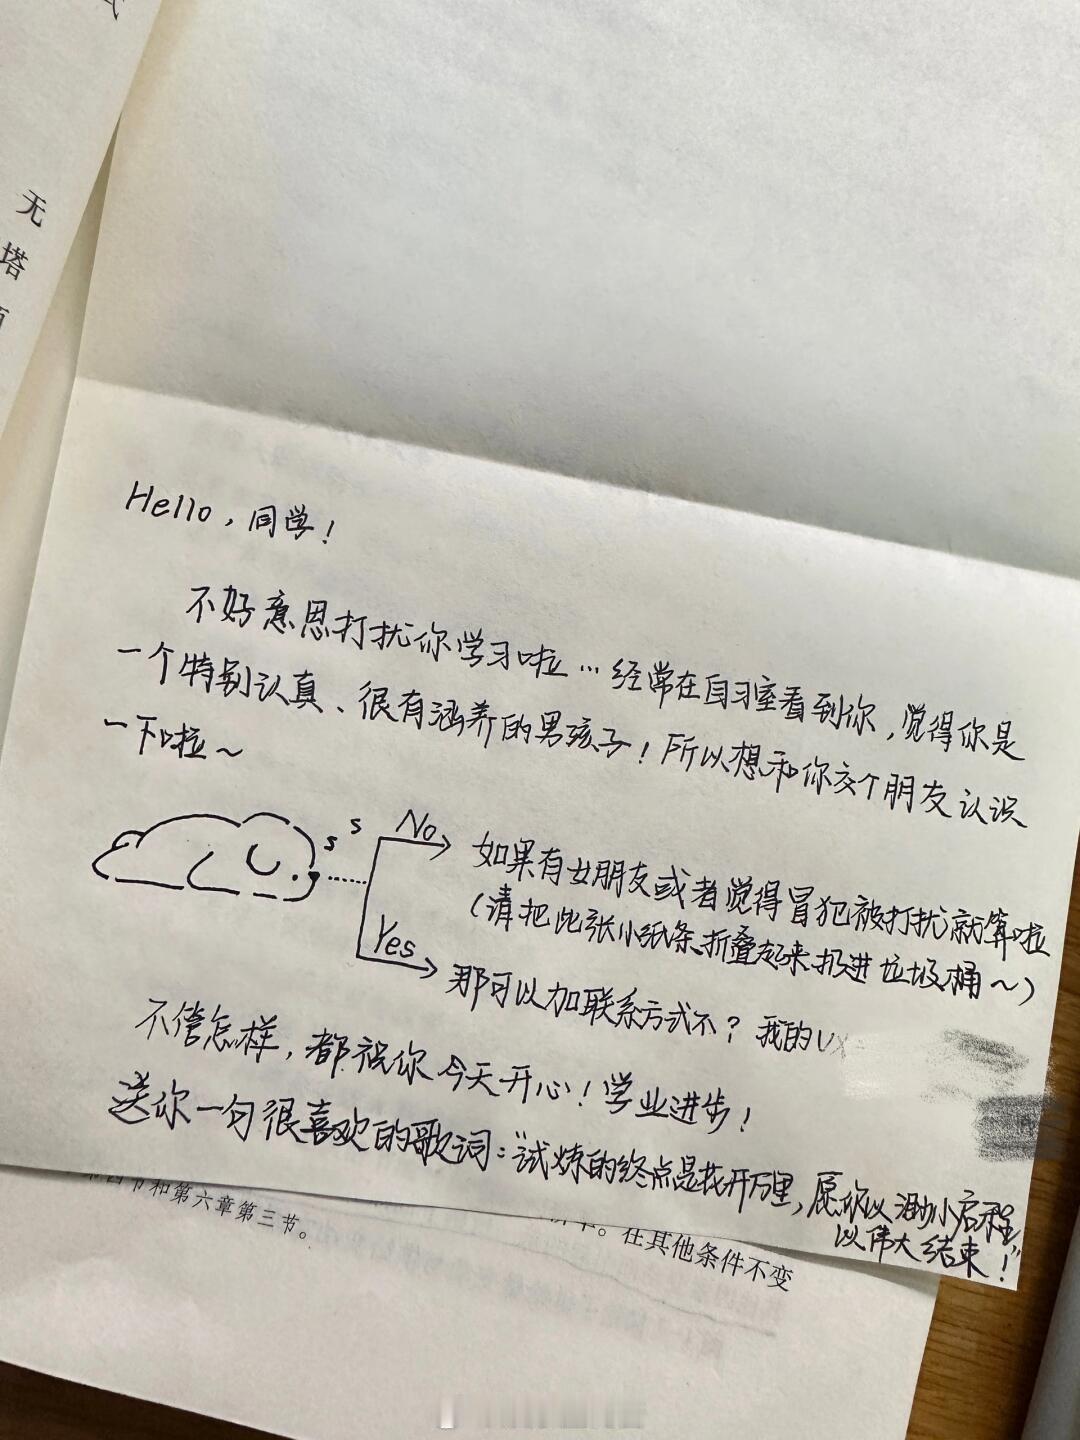 式
无
塔
Hello，同学！
不好意思打扰你学习啦…经常在自习室看到你，觉得你是
一个特别认真、很有涵养的男孩子！所以想和你交个朋友认识
一下啦～
s s
No
如果有女朋友或者觉得冒犯被打扰就算啦
（请把此张小纸条折叠起来扔进垃圾桶～）
Yes
那可以加联系方式不？我的VX
不管怎样，都祝你今天开心！学业进步！
送你一句很喜欢的歌词：“试炼的终点是花开万里，愿你以渺小启程，
以伟大结束！”
节和第六章第三节。
。在其他条件不变